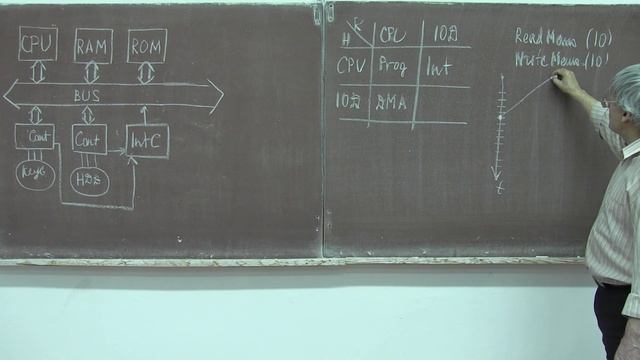 CPU RAM ROM
BUS
Cont Cont IntC
KeyB HDD
R CPU IOD
H
CPU Prog Int
IOD DMA
Read Memo (10)
Write Memo (10)
t